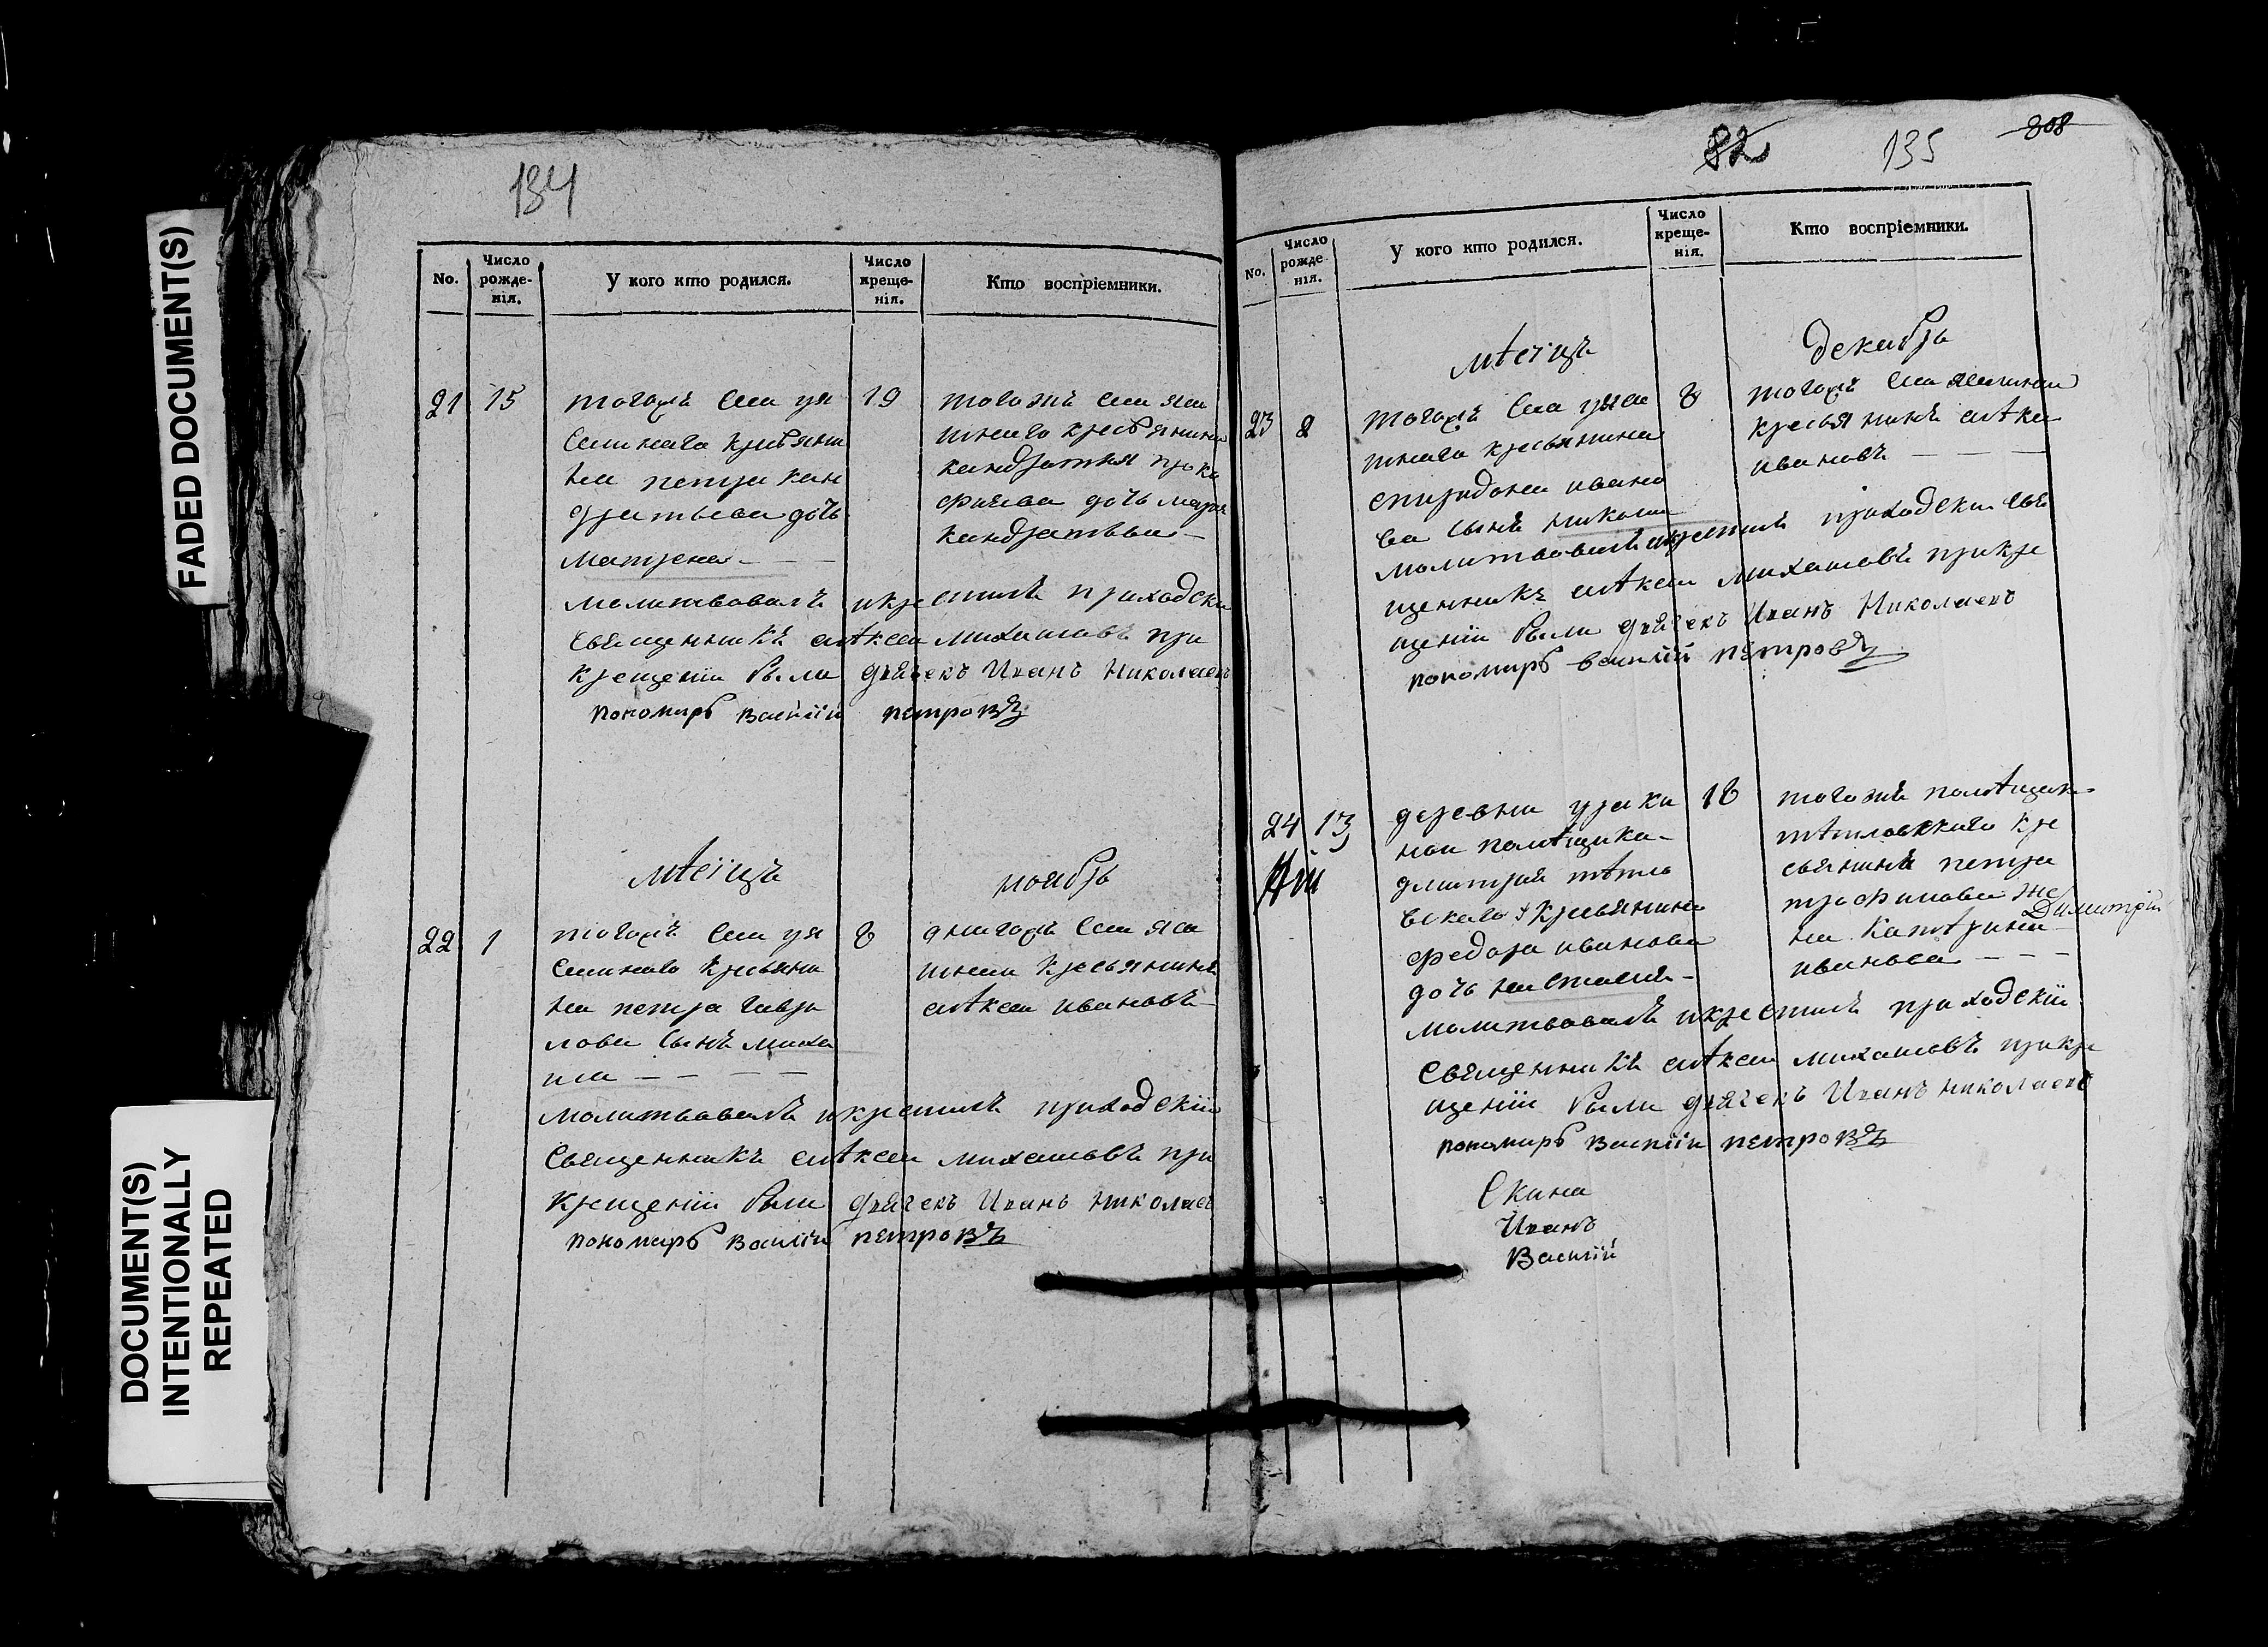 FADED DOCUMENT(S)
DOCUMENT(S)
INTENTIONALLY
REPEATED
134
No.
Число
рожде-
нія.
У кого кто родился.
Число
креще-
нія.
Кто воспріемники.
21
15
тогожъ села уя
сашнаго крестьяни
на петра кон
дратьева дочь
матрена
19
тогожъ села яса
шнаго крестьянина
кандратия проко
фиева дочь марья
кандратьева
молитвовалъ и крестилъ приходски
священникъ алѣксеи михаиловъ при
крещеніи были дьячекъ Иванъ Николаевъ
пономарь василій петровъ
мѣсіцъ
ноябрь
22
1
тогожъ села уя
сашнаго крестьяни
на петра гаври
лова сынъ миха
ила
8
тогожъ села яса
шнаи крестьянинъ
алѣксеи ивановъ
молитвовалъ и крестилъ приходскіи
священникъ алѣксеи михаиловъ при
крещеніи были дьячекъ Иванъ николаевъ
пономарь василіи петровъ
82
135
808
No.
Число
рожде
нія.
У кого кто родился.
Число
креще-
нія.
Кто воспріемники.
мѣсіцъ
декабрь
23
2
тогожъ села уяса
шнаго крестьянина
спиридона ивано
ва сынъ никола
8
тогожъ села ясашнаи
крестьянинъ алѣксеи
ивановъ
молитвовалъ и крестилъ приходски свя
щенникъ алѣксеи михаиловъ при кре
щеніи были дьячекъ Иванъ Николаевъ
пономарь василій петровъ
24
13
деревни ураки
нои помѣщика
дмитрия
вскаго крестьянина
федора иванова
дочь настасия
18
тогожъ помѣщик
крестьянина петра
трофимова же
на катѣрина
иванова
Димитрій
молитвовалъ и крестилъ приходскіи
священникъ алѣксеи михаиловъ при кре
щеніи были дьячекъ Иванъ николаевъ
пономарь василіи петровъ
Иванъ
Василій